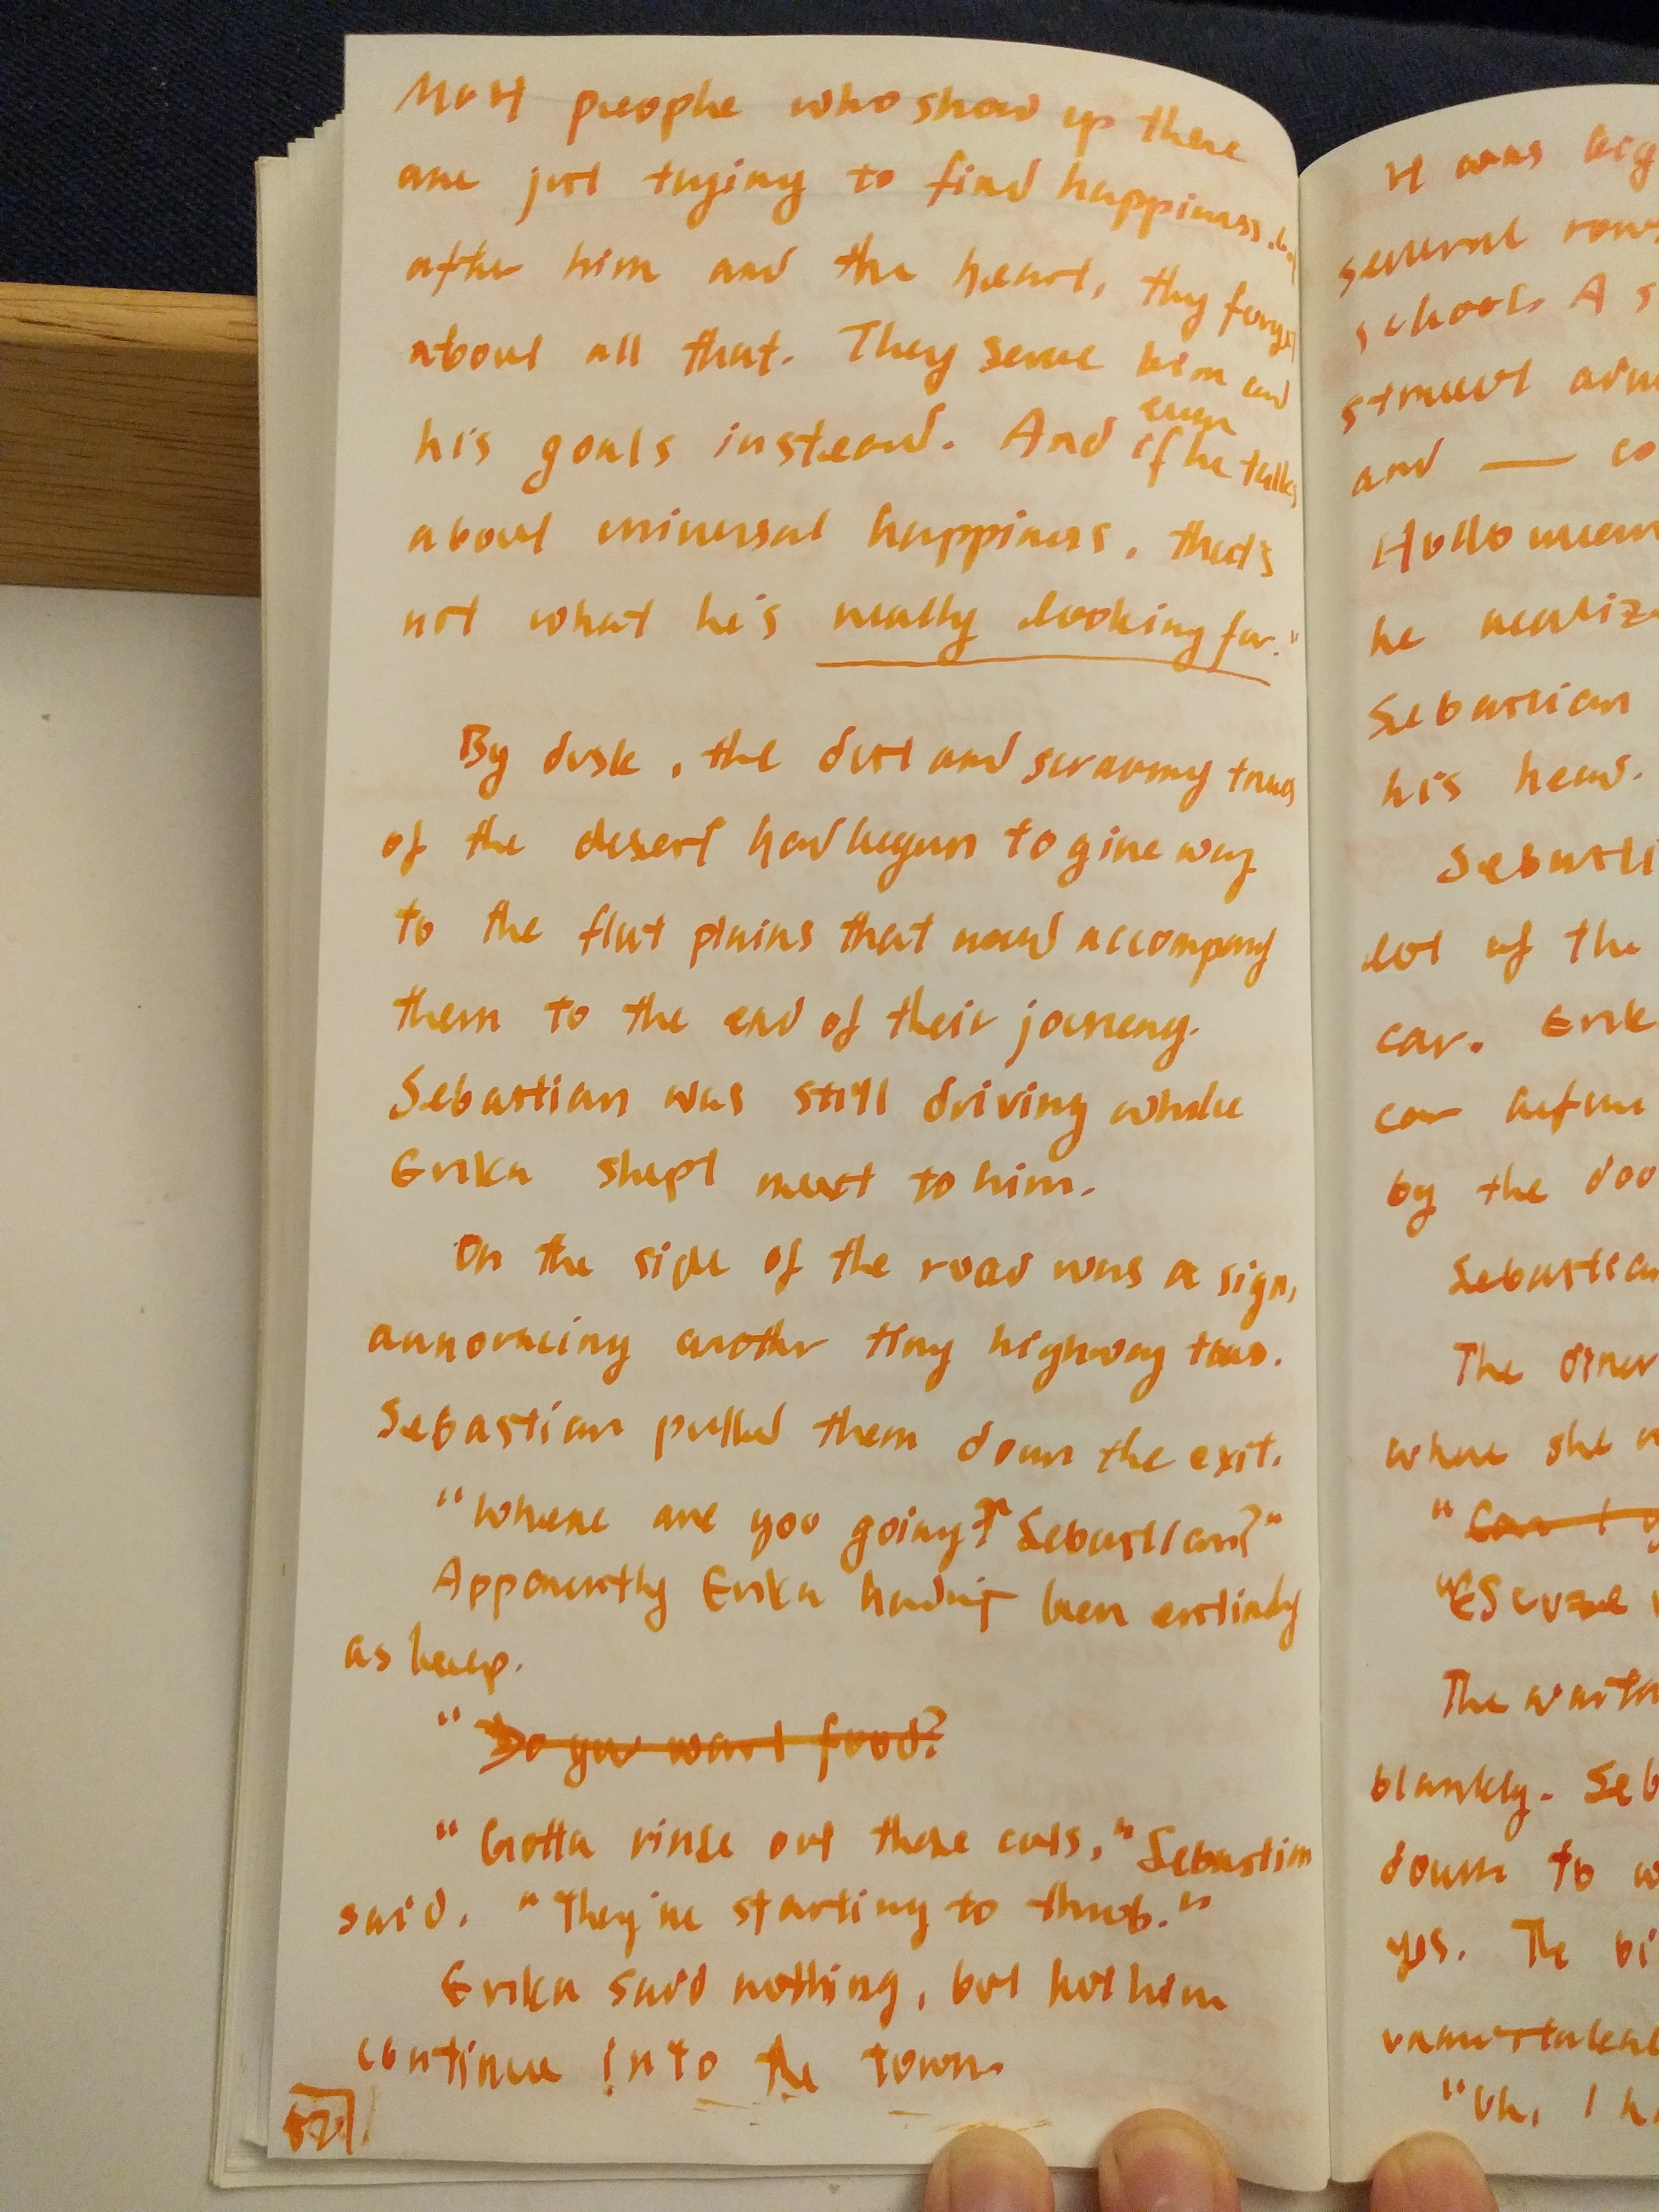 Most people who show up there
are just trying to find happiness, but
after him and the heart, they forget
about all that. They serve him and
his goals instead. And even if he talks
about universal happiness, that's
not what he's really looking for."
By dusk, the dirt and scrawny trees
of the desert had begun to give way
to the flat plains that would accompany
them to the end of their journey.
Sebastian was still driving while
Erika slept next to him.
On the side of the road was a sign,
announcing another tiny highway town.
Sebastian pulled them down the exit.
"Where are you going, Sebastian?"
Apparently Erika hadn't been entirely
asleep.
"Do you want food?
"Gotta rinse out these cuts," Sebastian
said. "They're starting to throb."
Erika said nothing, but let him
continue into the town.
52
It was
several rows
school. A
street
and — co
he
Sebastian
his head.
Sebasti
lot of the
car. Erik
car
by the doo
Sebastian
The diner
where she
"Can I
"
The
blankly. Seb
down to w
yes. The bi
"Uh, I h